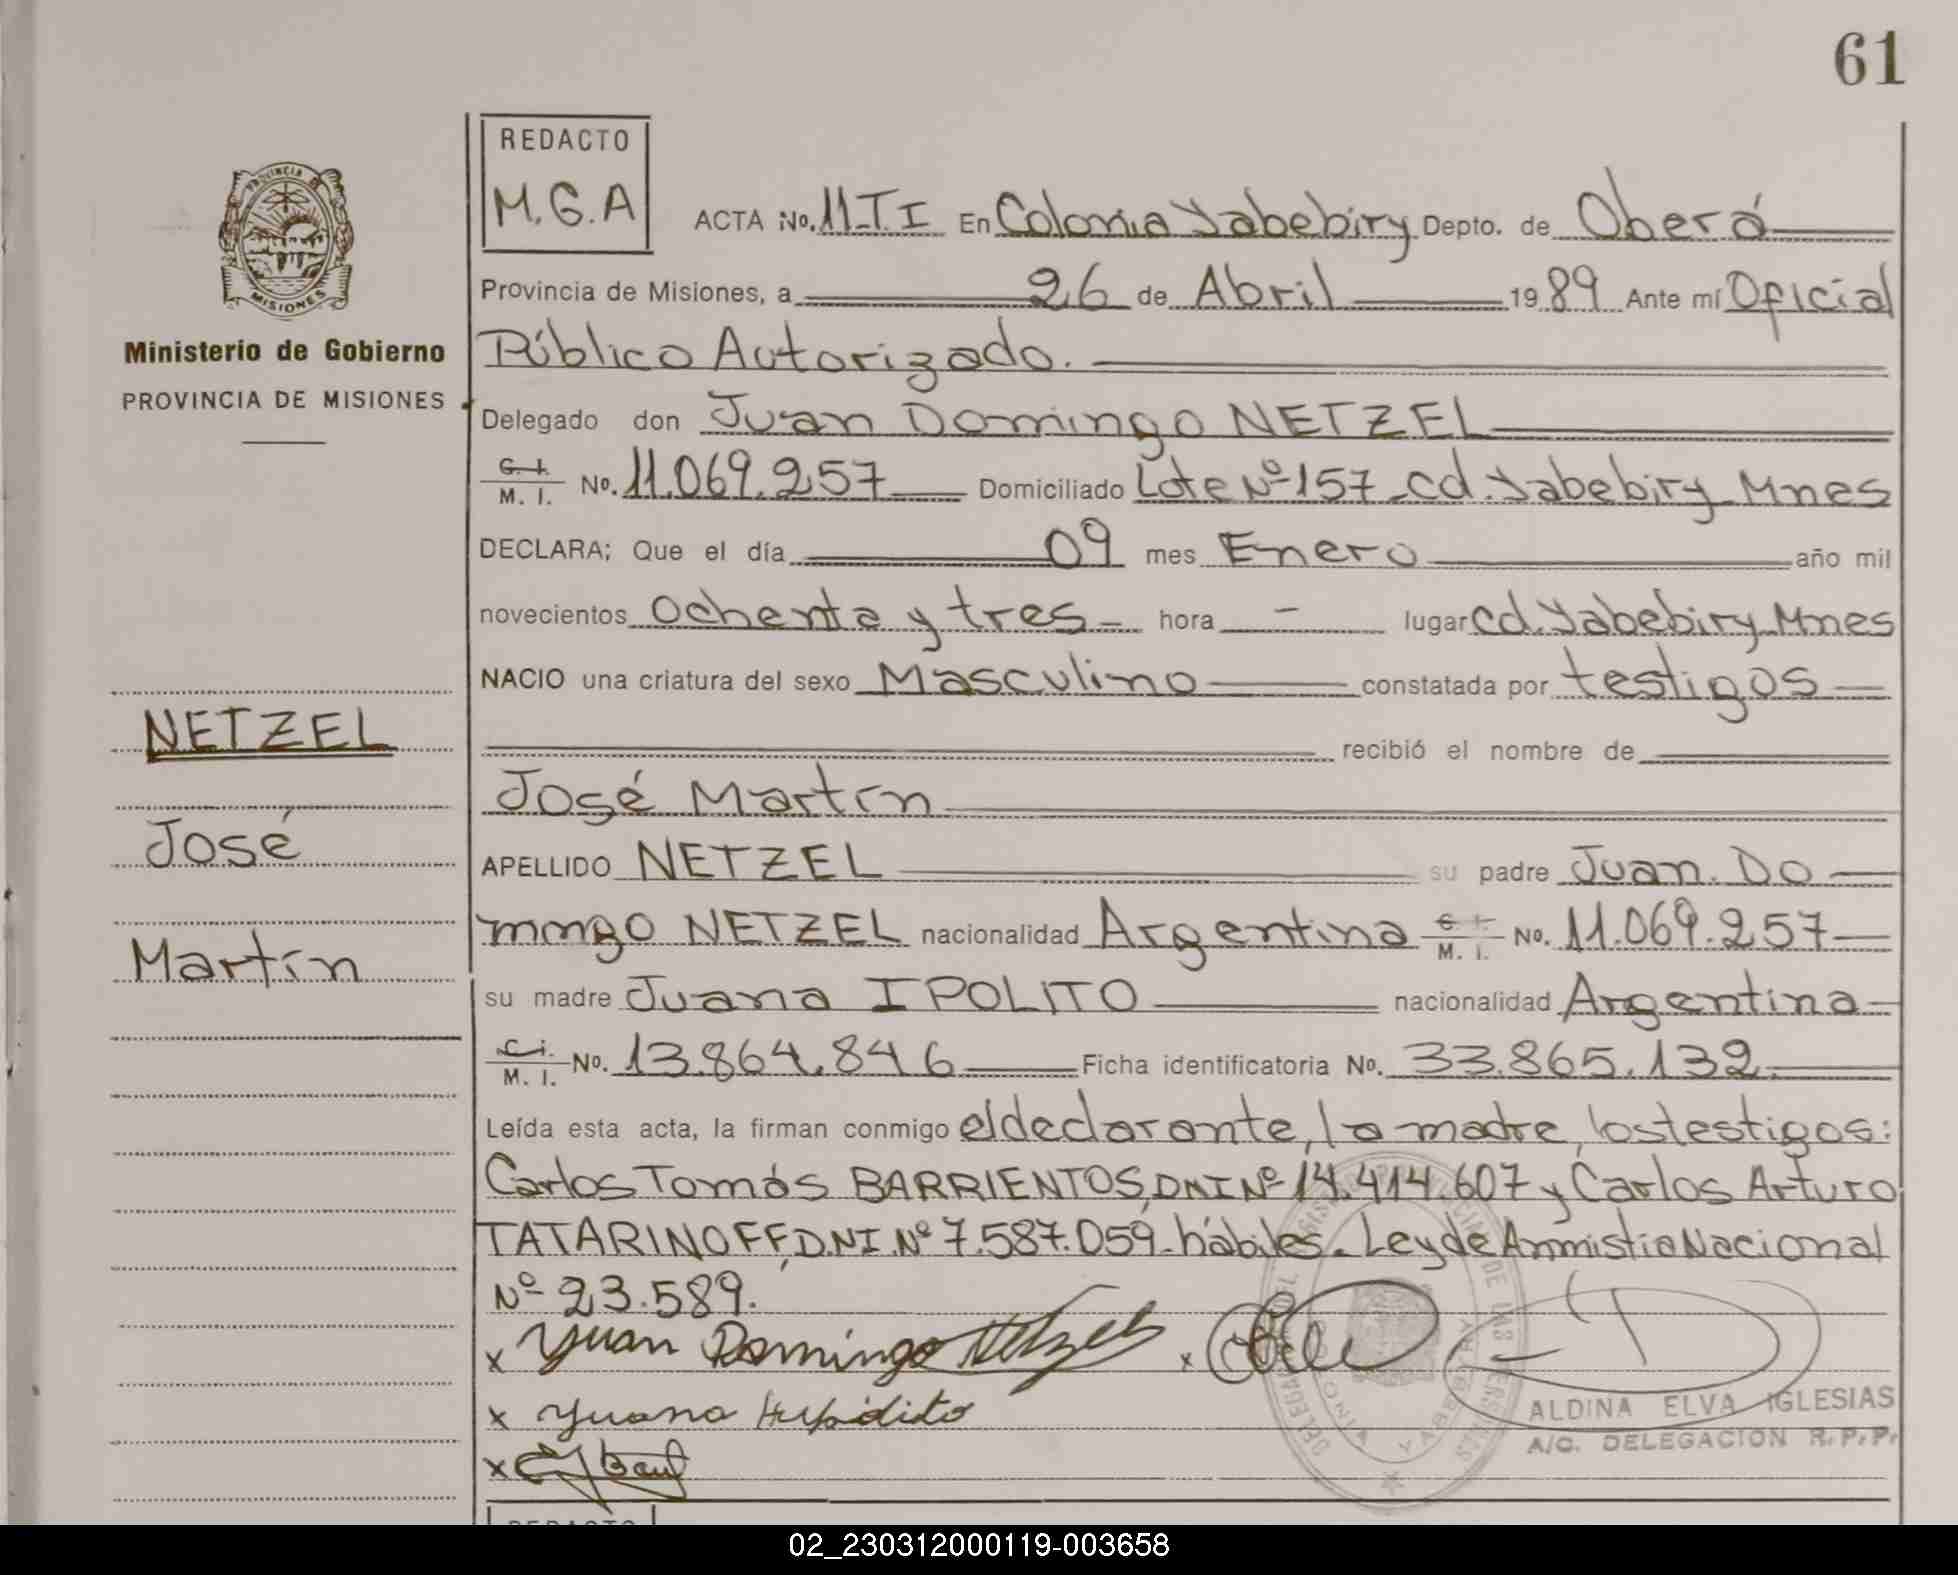 61
REDACTO
M.G.A
ACTA No. 11-T.I En Colonia Yabebiry Depto. de Oberá
Provincia de Misiones, a 26 de Abril 1989 Ante mí Oficial
Público Autorizado.
Delegado don Juan Domingo NETZEL
C. I. M. I. No. 11.069.257 Domiciliado Lote Nº 157-Cd. Yabebiry-Mnes
DECLARA; Que el día 09 mes Enero año mil
novecientos ochenta y tres- hora - lugar Cd. Yabebiry-Mnes
NACIO una criatura del sexo Masculino constatada por testigos
recibió el nombre de
José Martín
APELLIDO NETZEL su padre Juan Do
mingo NETZEL nacionalidad Argentina C. I. M. I. No. 11.069.257
su madre Juana IPOLITO nacionalidad Argentina
C. I. M. I. No. 13.864.846 Ficha identificatoria No. 33.865.132
Leída esta acta, la firman conmigo el declarante, la madre, los testigos:
Carlos Tomás BARRIENTOS, DNI Nº 14.414.607 y Carlos Arturo
TATARINOFF, D.N.I. Nº 7.587.059-hábiles. Ley de Amnistia Nacional
Nº 23.589.
x Yuan Domingo Netzel x
x Yuana Hipolito
x
ALDINA ELVA IGLESIAS
A/C. DELEGACION R.P.P.
PROVINCIA DE MISIONES
Ministerio de Gobierno
PROVINCIA DE MISIONES
NETZEL
José
Martín
REDACTO
02_230312000119-003658